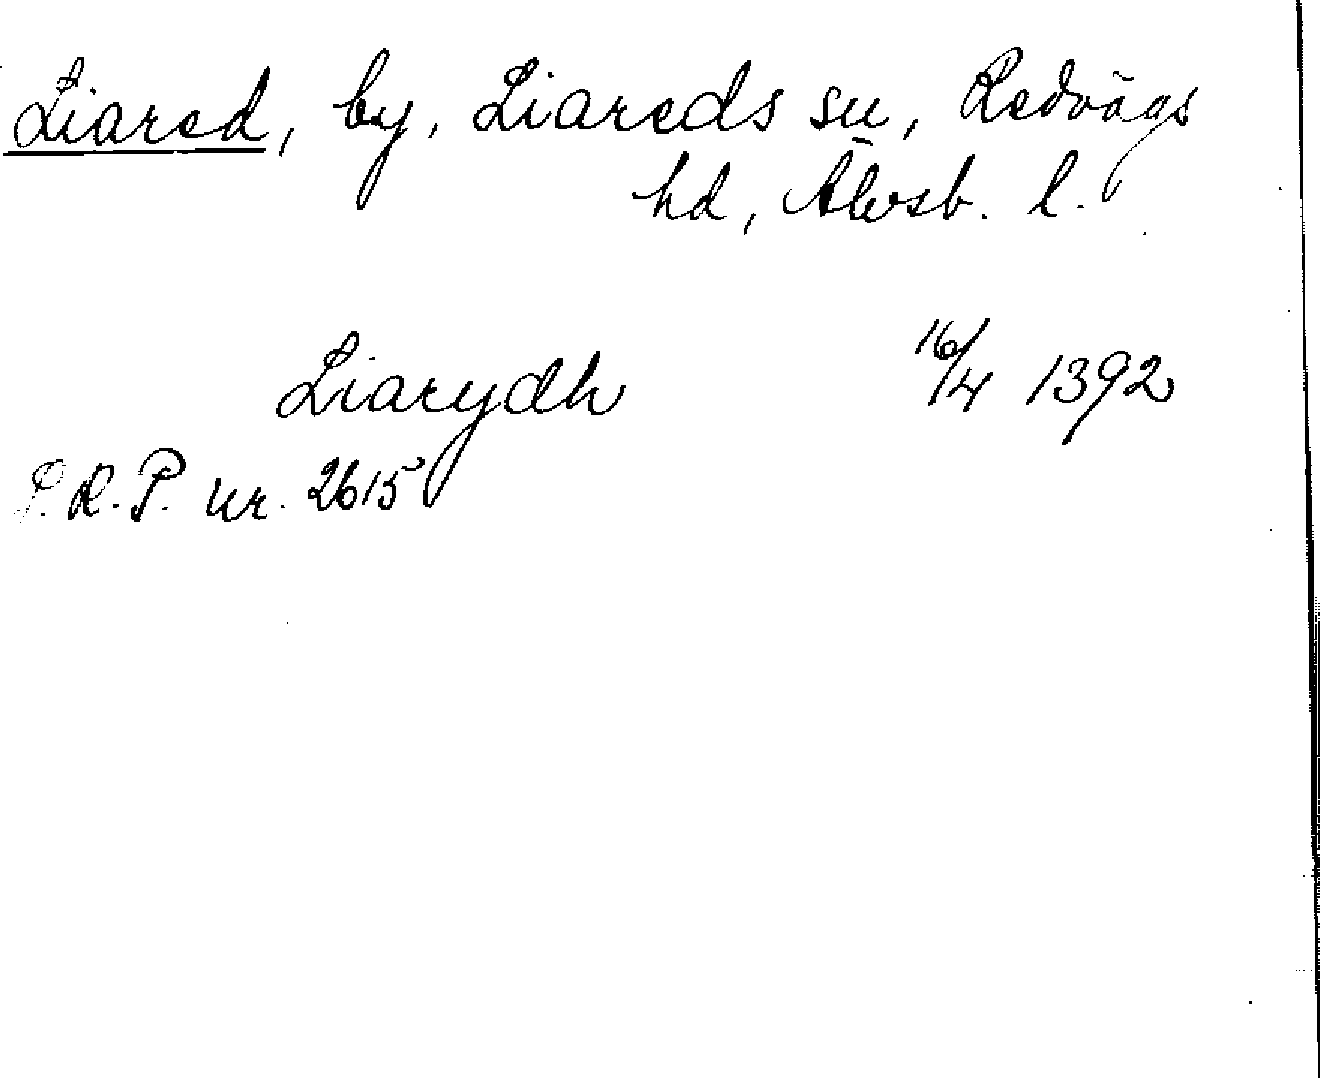 Liared, by, Liareds sn, Redvägs
hd, Älvsb. l.
Liarydh 16/4 1392
P.R.P. nr. 2615